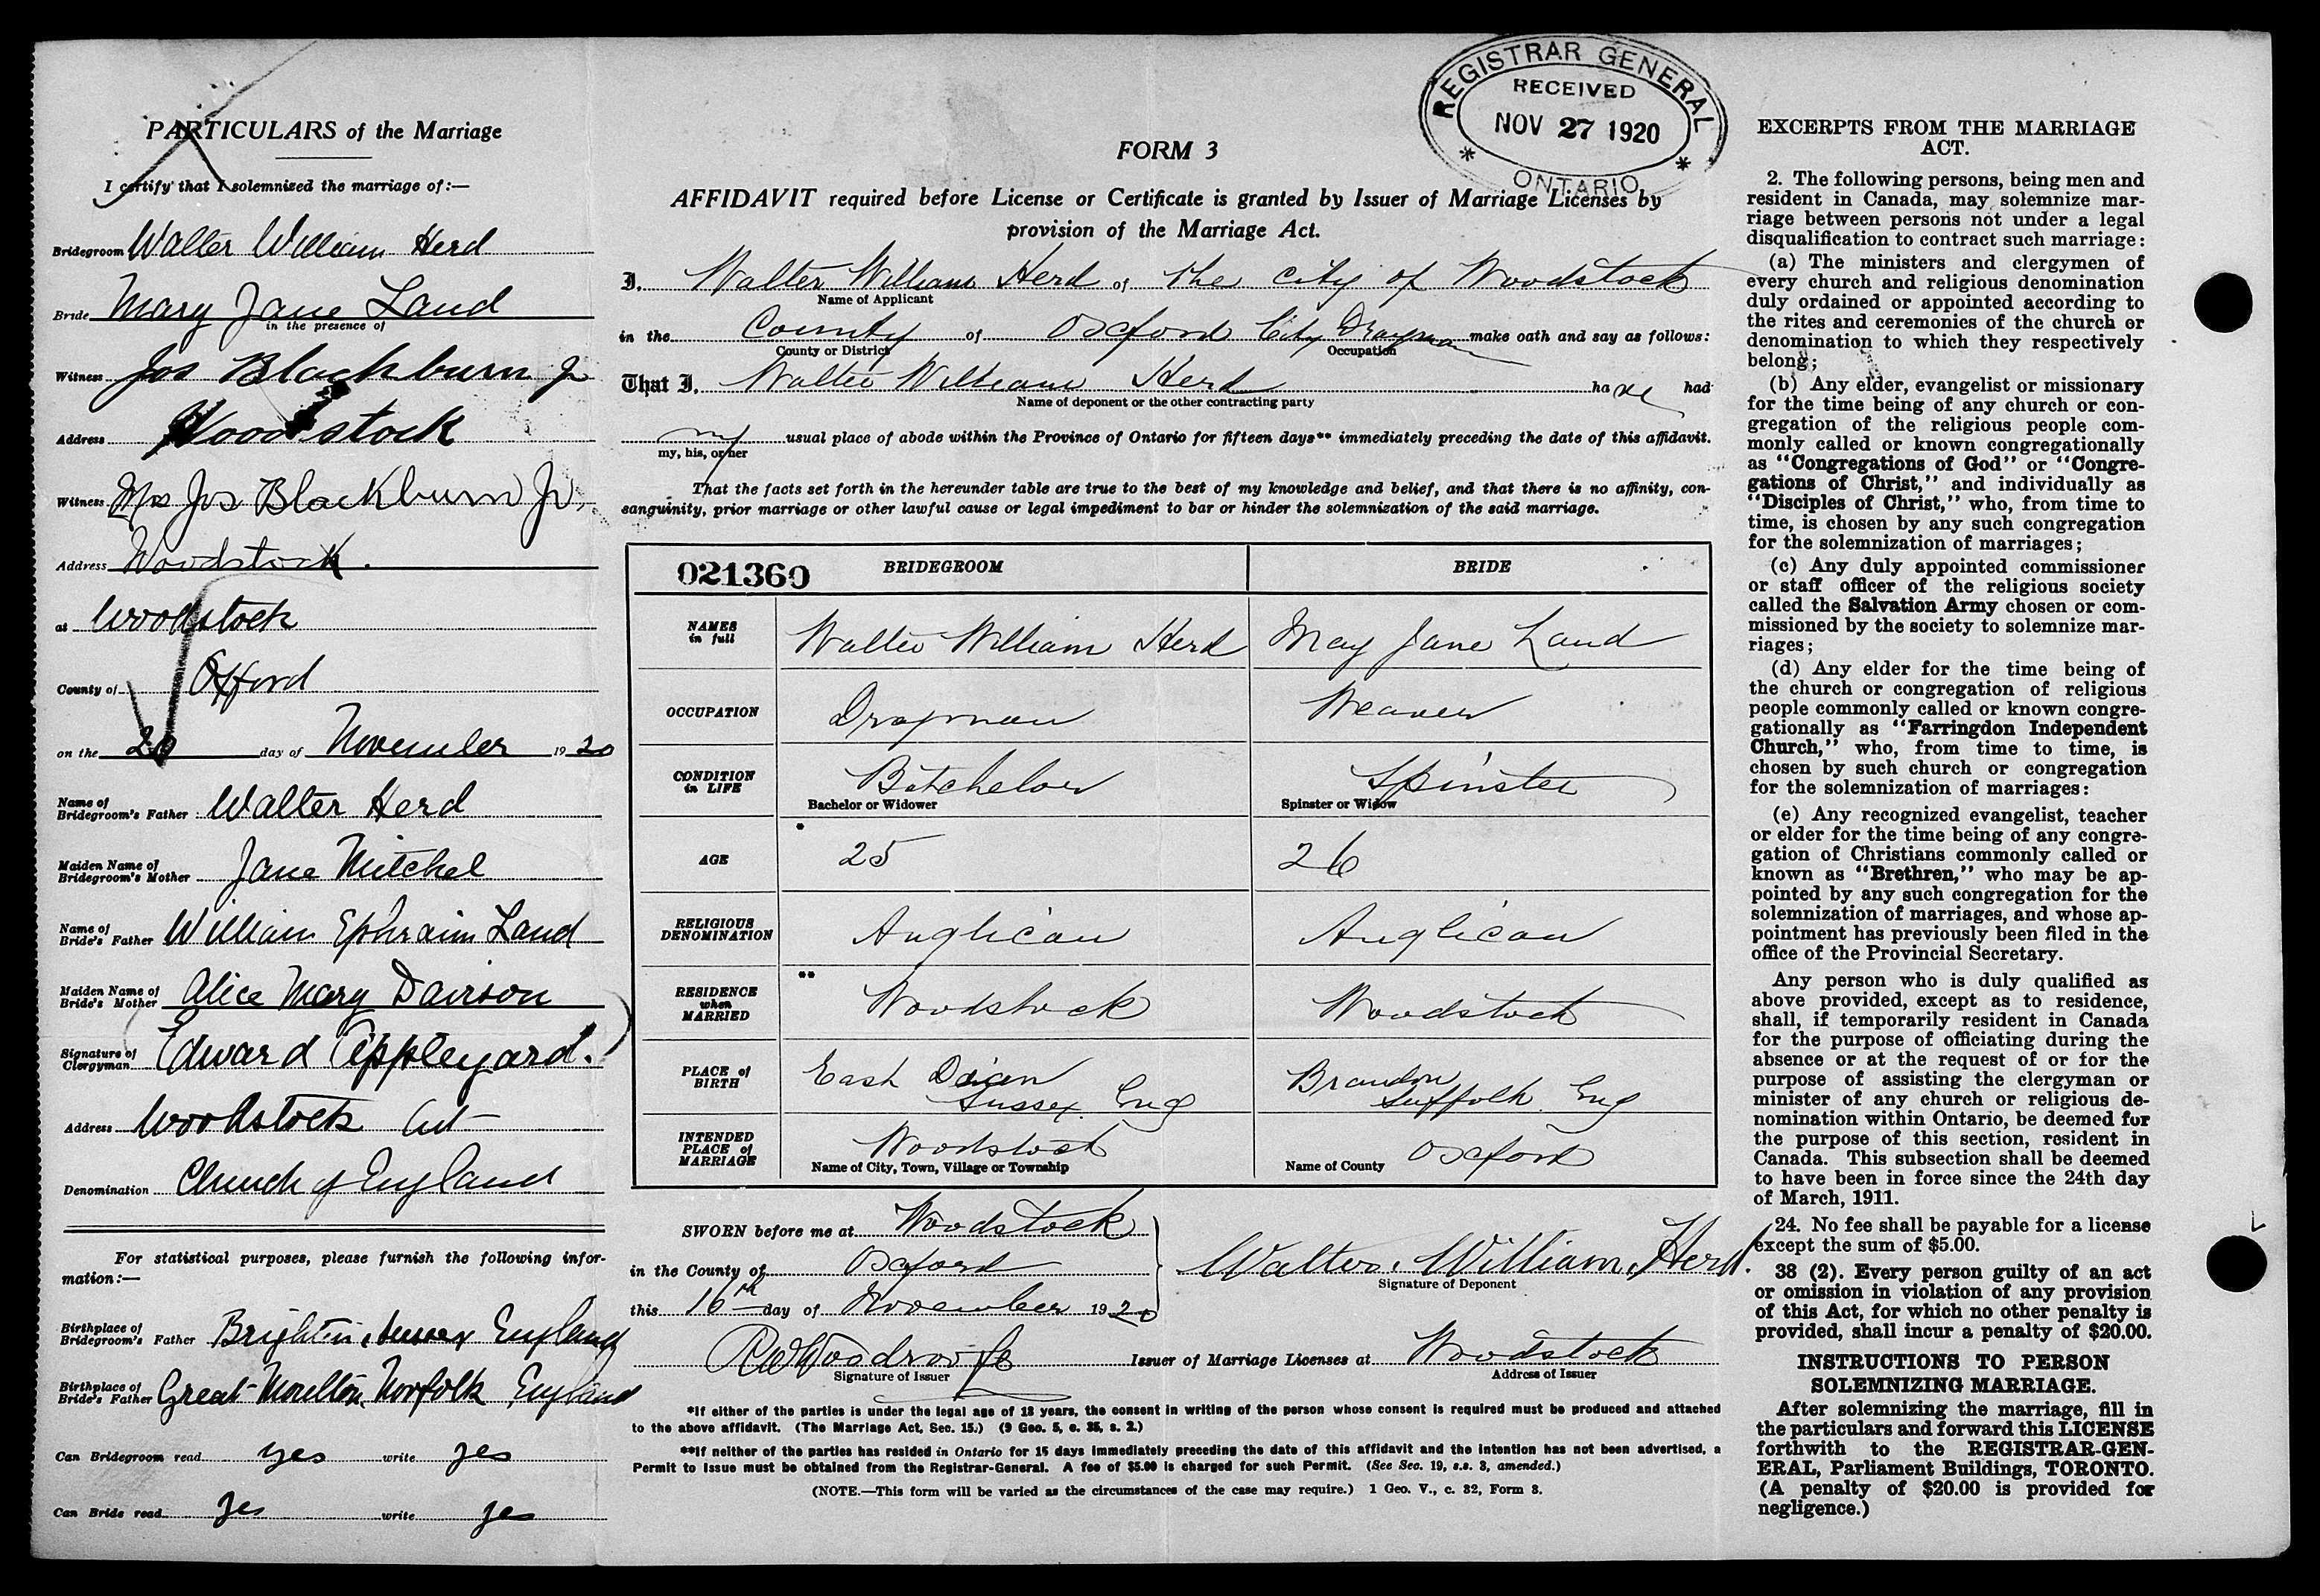 PARTICULARS of the Marriage
I certify that I solemnized the marriage of:—
Bridegroom Walter William Herd
Bride Mary Jane Land
in the presence of
Witness Jos Blackburn Jr
Address Woodstock
Witness Mrs Jos Blackburn Jr.
Address Woodstock.
at Woodstock
County of Oxford
on the 20 day of November 1920
Name of Bridegroom's Father Walter Herd
Maiden Name of Bridegroom's Mother Jane Mitchel
Name of Bride's Father William Ephraim Land
Maiden Name of Bride's Mother Alice Mary Davison
Signature of Clergyman Edward Appleyard.
Address Woodstock Ont
Denomination Church of England
For statistical purposes, please furnish the following infor-
mation:—
Birthplace of Bridegroom's Father Brighton, Sussex England
Birthplace of Bride's Father Great Moulton, Norfolk England
Can Bridegroom read yes write yes
Can Bride read yes write yes
REGISTRAR GENERAL
RECEIVED
NOV 27 1920
* ONTARIO *
FORM 3
AFFIDAVIT required before License or Certificate is granted by Issuer of Marriage Licenses by
provision of the Marriage Act.
I, Walter William Herd of the City of Woodstock
Name of Applicant
in the County of Oxford City Drayman make oath and say as follows:
County or District Occupation
That I, Walter William Herd have had
Name of deponent or the other contracting party
my usual place of abode within the Province of Ontario for fifteen days** immediately preceding the date of this affidavit.
my, his, or her
That the facts set forth in the hereunder table are true to the best of my knowledge and belief, and that there is no affinity, con-
sanguinity, prior marriage or other lawful cause or legal impediment to bar or hinder the solemnization of the said marriage.
021360 BRIDEGROOM BRIDE
NAMES in full Walter William Herd May Jane Land
OCCUPATION Drayman Weaver
CONDITION in LIFE Batchelor Spinster
Bachelor or Widower Spinster or Widow
AGE * 25 26
RELIGIOUS DENOMINATION Anglican Anglican
RESIDENCE when MARRIED ** Woodstock Woodstock
PLACE of BIRTH East Dean Sussex Eng Brandon Suffolk Eng
INTENDED PLACE of MARRIAGE Woodstock Oxford
Name of City, Town, Village or Township Name of County
SWORN before me at Woodstock
in the County of Oxford
this 16th day of November 1920
Walter. William. Herd.
Signature of Deponent
Woodroofe Issuer of Marriage Licenses at Woodstock
Signature of Issuer Address of Issuer
*If either of the parties is under the legal age of 18 years, the consent in writing of the person whose consent is required must be produced and attached
to the above affidavit. (The Marriage Act, Sec. 15.) (9 Geo. 5, c. 35, s. 2.)
**If neither of the parties has resided in Ontario for 15 days immediately preceding the date of this affidavit and the intention has not been advertised, a
Permit to issue must be obtained from the Registrar-General. A fee of $5.00 is charged for such Permit. (See Sec. 19, s.s. 3, amended.)
(NOTE.—This form will be varied as the circumstances of the case may require.) 1 Geo. V., c. 32, Form 3.
EXCERPTS FROM THE MARRIAGE
ACT.
2. The following persons, being men and
resident in Canada, may solemnize mar-
riage between persons not under a legal
disqualification to contract such marriage:
(a) The ministers and clergymen of
every church and religious denomination
duly ordained or appointed according to
the rites and ceremonies of the church or
denomination to which they respectively
belong;
(b) Any elder, evangelist or missionary
for the time being of any church or con-
gregation of the religious people com-
monly called or known congregationally
as "Congregations of God" or "Congre-
gations of Christ," and individually as
"Disciples of Christ," who, from time to
time, is chosen by any such congregation
for the solemnization of marriages;
(c) Any duly appointed commissioner
or staff officer of the religious society
called the Salvation Army chosen or com-
missioned by the society to solemnize mar-
riages;
(d) Any elder for the time being of
the church or congregation of religious
people commonly called or known congre-
gationally as "Farringdon Independent
Church," who, from time to time, is
chosen by such church or congregation
for the solemnization of marriages:
(e) Any recognized evangelist, teacher
or elder for the time being of any congre-
gation of Christians commonly called or
known as "Brethren," who may be ap-
pointed by any such congregation for the
solemnization of marriages, and whose ap-
pointment has previously been filed in the
office of the Provincial Secretary.
Any person who is duly qualified as
above provided, except as to residence,
shall, if temporarily resident in Canada
for the purpose of officiating during the
absence or at the request of or for the
purpose of assisting the clergyman or
minister of any church or religious de-
nomination within Ontario, be deemed for
the purpose of this section, resident in
Canada. This subsection shall be deemed
to have been in force since the 24th day
of March, 1911.
24. No fee shall be payable for a license
except the sum of $5.00.
38 (2). Every person guilty of an act
or omission in violation of any provision
of this Act, for which no other penalty is
provided, shall incur a penalty of $20.00.
INSTRUCTIONS TO PERSON
SOLEMNIZING MARRIAGE.
After solemnizing the marriage, fill in
the particulars and forward this LICENSE
forthwith to the REGISTRAR-GEN-
ERAL, Parliament Buildings, TORONTO.
(A penalty of $20.00 is provided for
negligence.)